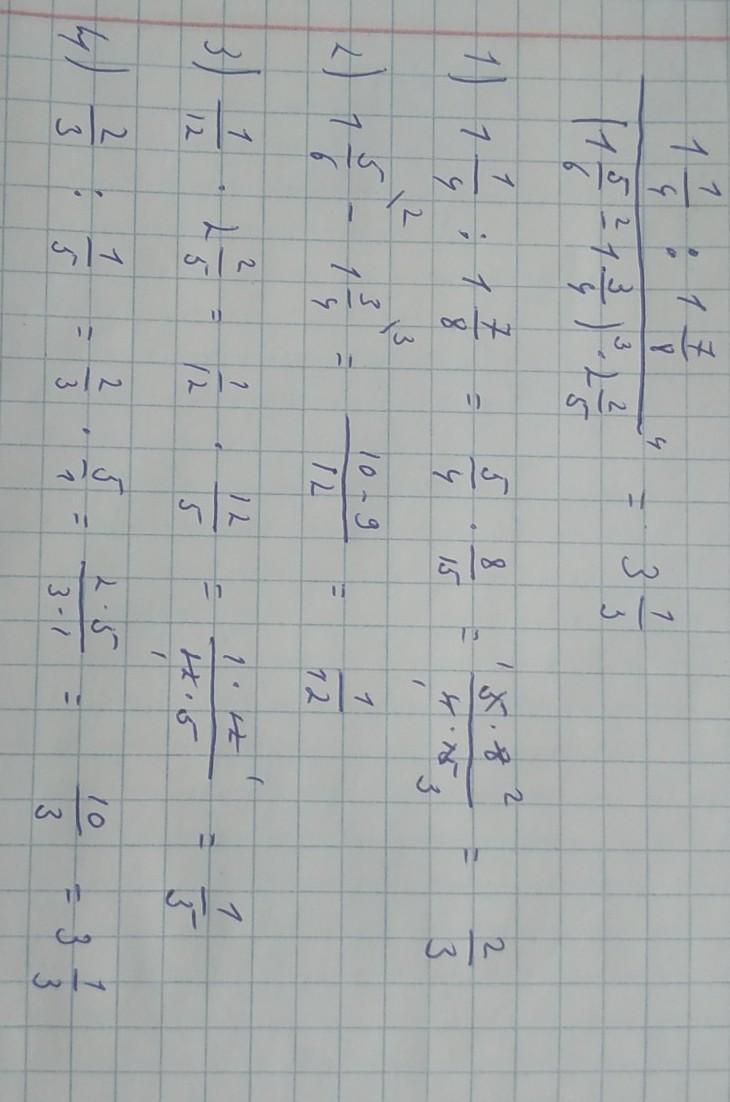 1 1/4 : 1 7/8
(1 5/6 - 1 3/4) · 2 2/5 = 3 1/3
1) 1 1/4 : 1 7/8 = 5/4 · 8/15 = 5·8/4·15 = 2/3
2) 1 5/6 \2 - 1 3/4 \3 = 10-9/12 = 1/12
3) 1/12 · 2 2/5 = 1/12 · 12/5 = 1·12/12·5 = 1/5
4) 2/3 : 1/5 = 2/3 · 5/1 = 2·5/3·1 = 10/3 = 3 1/3